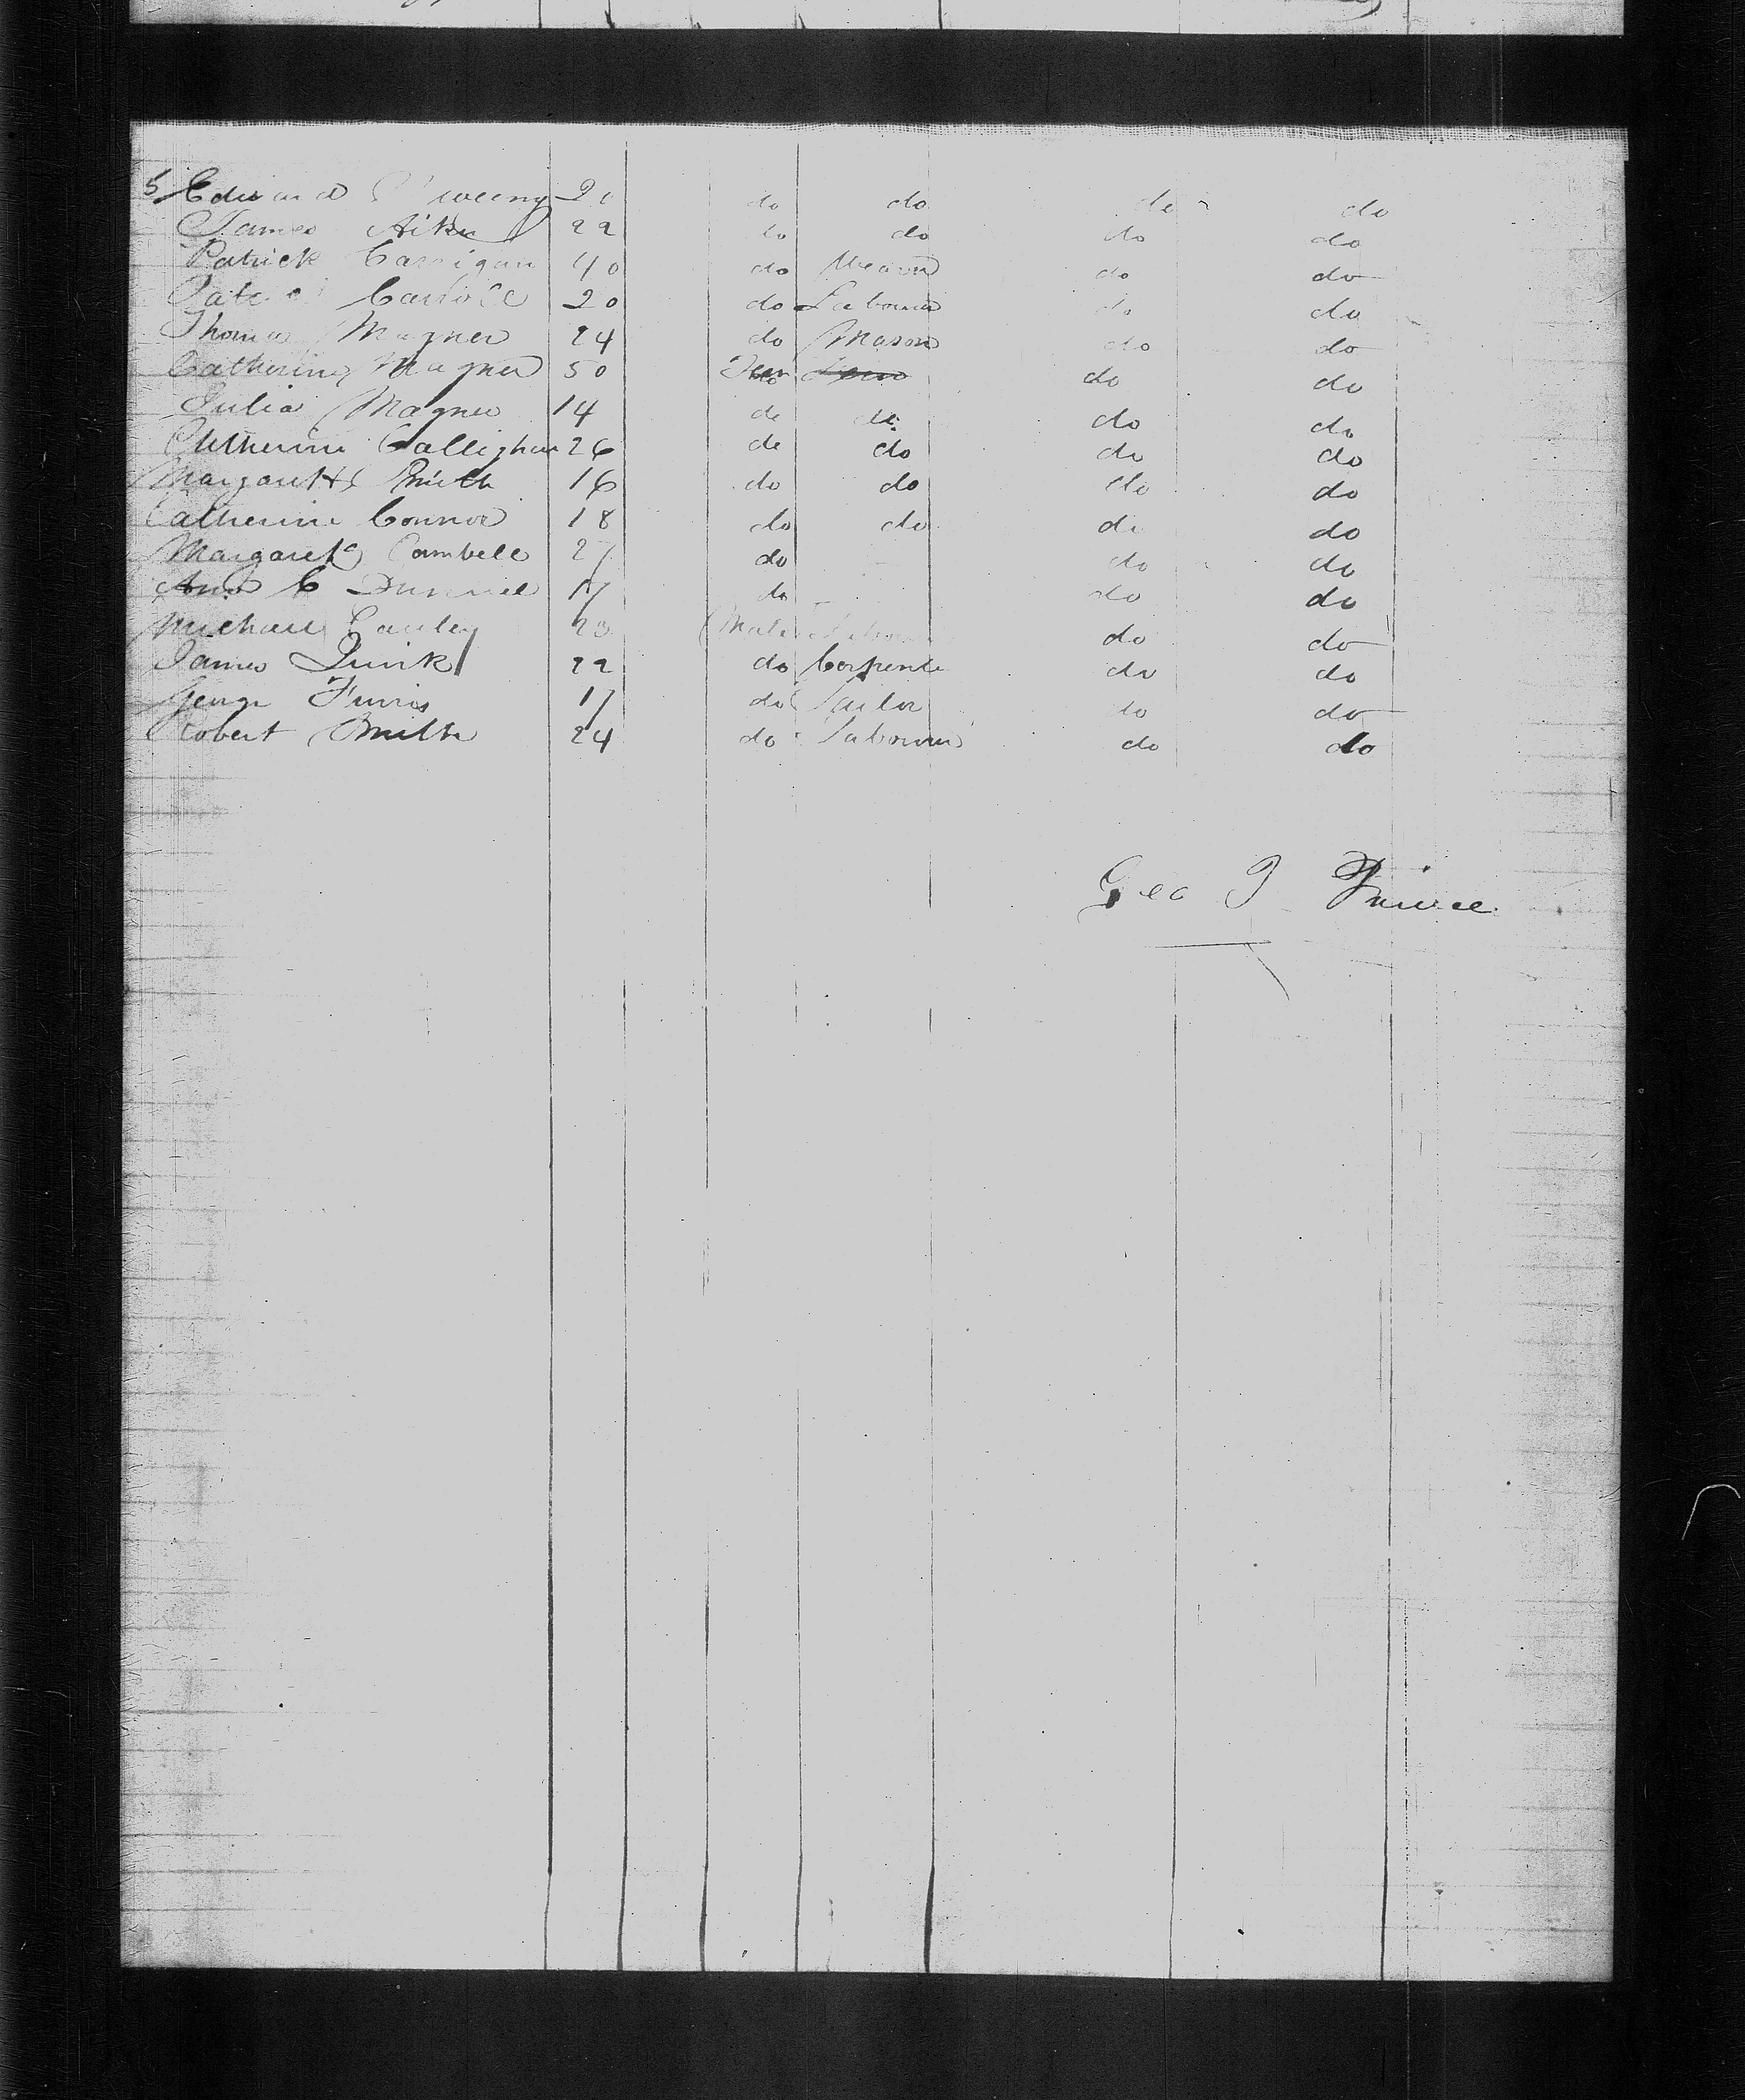 5 Edward Sweeny 20 do do do do
James Aiken 22 do do do do
Patrick Carrigan 40 do do do
Patrick Carroll 20 do Labourer do do
Thomas Magner 24 do Mason do do
Catherine Magner 50 Fem do do
Julia Magner 14 do do do do
Catherine Gallighan 26 do do do do
Margaret Smith 16 do do do do
Catherine Connor 18 do do do do
Margaret Cambell 27 do do do
Ann C 17 do do do
Michael Cauley 20 Male Labourer do do
James Quirk 22 do Carpenter do do
George Ferris 17 do Sailor do do
Robert Smith 24 do Labourer do do
Geo